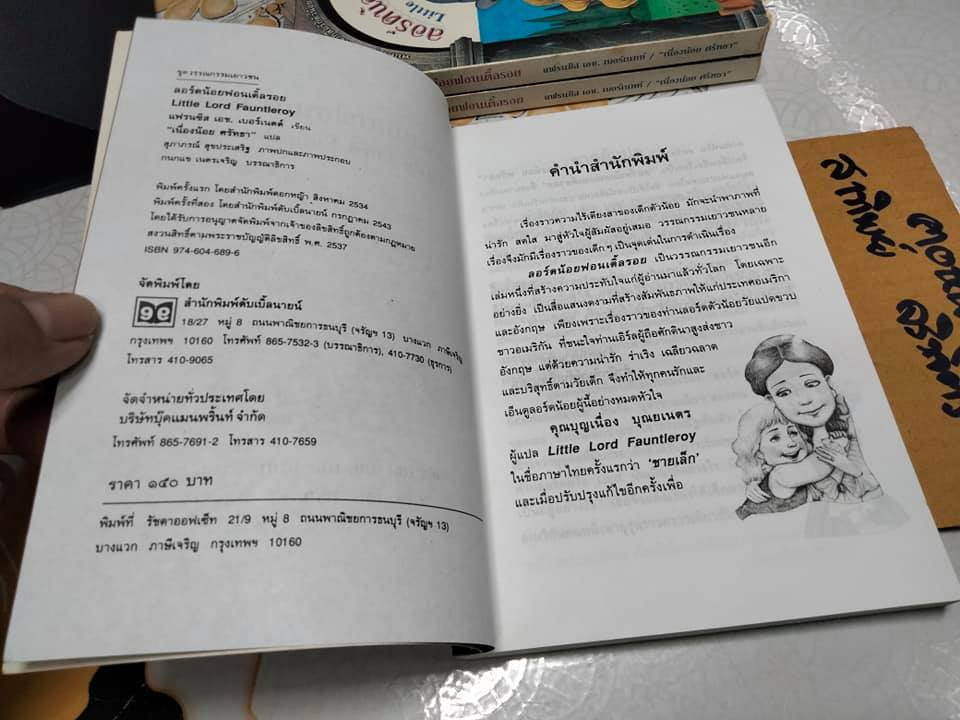 ลอร์ดน้อย
Little
น้อยฟอนเติ้ลรอย แฟรนซิส เอช. เบอร์เนทท์ / "เนื่องน้อย ศรัทธา"
น้อยฟอนเติ้ลรอย แฟรนซิส เอช. เบอร์เนทท์ / "เนื่องน้อย ศรัทธา"
ชุดวรรณกรรมเยาวชน
ลอร์ดน้อยฟอนเติ้ลรอย
Little Lord Fauntleroy
แฟรนซิส เอช. เบอร์เนตต์ เขียน
"เนื่องน้อย ศรัทธา" แปล
สุภาภรณ์ สุขประเสริฐ ภาพปกและภาพประกอบ
กนกแข เนตรเจริญ บรรณาธิการ
พิมพ์ครั้งแรก โดยสำนักพิมพ์ดอกหญ้า สิงหาคม 2534
พิมพ์ครั้งที่สอง โดยสำนักพิมพ์ดับเบิ้ลนายน์ กรกฎาคม 2543
โดยได้รับการอนุญาตจัดพิมพ์จากเจ้าของลิขสิทธิ์ถูกต้องตามกฎหมาย
สงวนสิทธิ์ตามพระราชบัญญัติลิขสิทธิ์ พ.ศ. 2537
ISBN 974-604-689-6
จัดพิมพ์โดย
สำนักพิมพ์ดับเบิ้ลนายน์
18/27 หมู่ 8 ถนนพาณิชยการธนบุรี (จรัญฯ 13) บางแวก ภาษีเจริญ
กรุงเทพฯ 10160 โทรศัพท์ 865-7532-3 (บรรณาธิการ), 410-7730 (ธุรการ)
โทรสาร 410-9065
จัดจำหน่ายทั่วประเทศโดย
บริษัทบุ๊คแมนพริ้นท์ จำกัด
โทรศัพท์ 865-7691-2 โทรสาร 410-7659
ราคา ๑๔๐ บาท
พิมพ์ที่ รัชดาออฟเซ็ท 21/9 หมู่ 8 ถนนพาณิชยการธนบุรี (จรัญฯ 13)
บางแวก ภาษีเจริญ กรุงเทพฯ 10160
คำนำสำนักพิมพ์
เรื่องราวความไร้เดียงสาของเด็กตัวน้อย มักจะนำพาภาพที่
น่ารัก สดใส มาสู่หัวใจผู้สัมผัสอยู่เสมอ วรรณกรรมเยาวชนหลาย
เรื่องจึงมักมีเรื่องราวของเด็กๆ เป็นจุดเด่นในการดำเนินเรื่อง
ลอร์ดน้อยฟอนเติ้ลรอย เป็นวรรณกรรมเยาวชนอีก
เล่มหนึ่งที่สร้างความประทับใจแก่ผู้อ่านมาแล้วทั่วโลก โดยเฉพาะ
อย่างยิ่ง เป็นสื่อแสนงดงามที่สร้างสัมพันธภาพให้แก่ประเทศอเมริกา
และอังกฤษ เพียงเพราะเรื่องราวของท่านลอร์ดตัวน้อยวัยแปดขวบ
ชาวอเมริกัน ที่ชนะใจท่านเอิร์ลผู้ถือศักดินาสูงส่งชาว
อังกฤษ แต่ด้วยความน่ารัก ร่าเริง เฉลียวฉลาด
และบริสุทธิ์ตามวัยเด็ก จึงทำให้ทุกคนรักและ
เอ็นดูลอร์ดน้อยผู้นี้อย่างหมดหัวใจ
คุณบุญเนื่อง บุณยเนตร
ผู้แปล Little Lord Fauntleroy
ในชื่อภาษาไทยครั้งแรกว่า 'ชายเล็ก'
และเมื่อปรับปรุงแก้ไขอีกครั้งเพื่อ